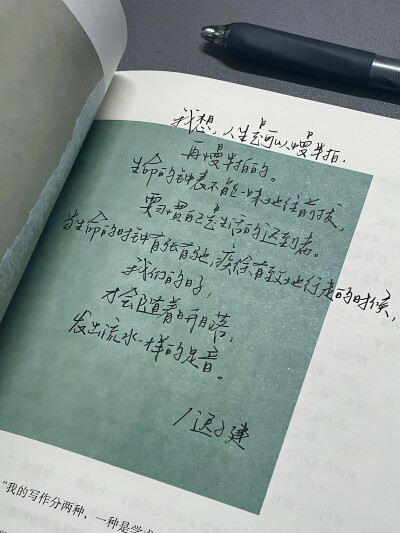 我想，人生是可以慢半拍，
再慢半拍的。
生命的钟表不能一味地往前拨，
要习惯自己是生活的迟到者。
当生命的时钟有张有弛，疾徐有致地行走的时候，
我们的日子，
才会随着日升月落，
发出流水一样的足音。
/迟子建
“我的写作分两种，一种是学